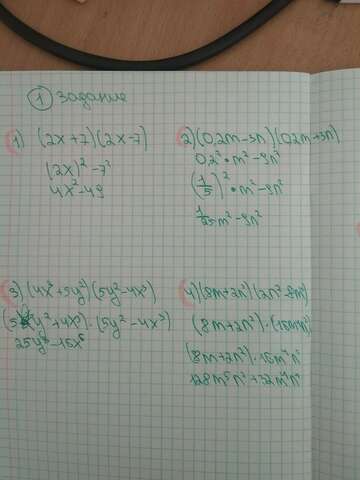 ① Задание
1) (2x+7)(2x-7)
(2x)² - 7²
4x² - 49
2) (0,2m-3n)(0,2m+3n)
0,2² • m² - 9n²
(1/5)² • m² - 9n²
1/25 m² - 9n²
3) (4x³+5y²)(5y²-4x³)
(5y²+4x³)•(5y²-4x³)
25y⁴ - 16x⁶
4) (8m+2n²)(2n²-8m)
(8m+2n²)•(-16m⁴n²)
(8m+2n²)•16m⁴n²
128m⁵n² + 32m⁴n⁴